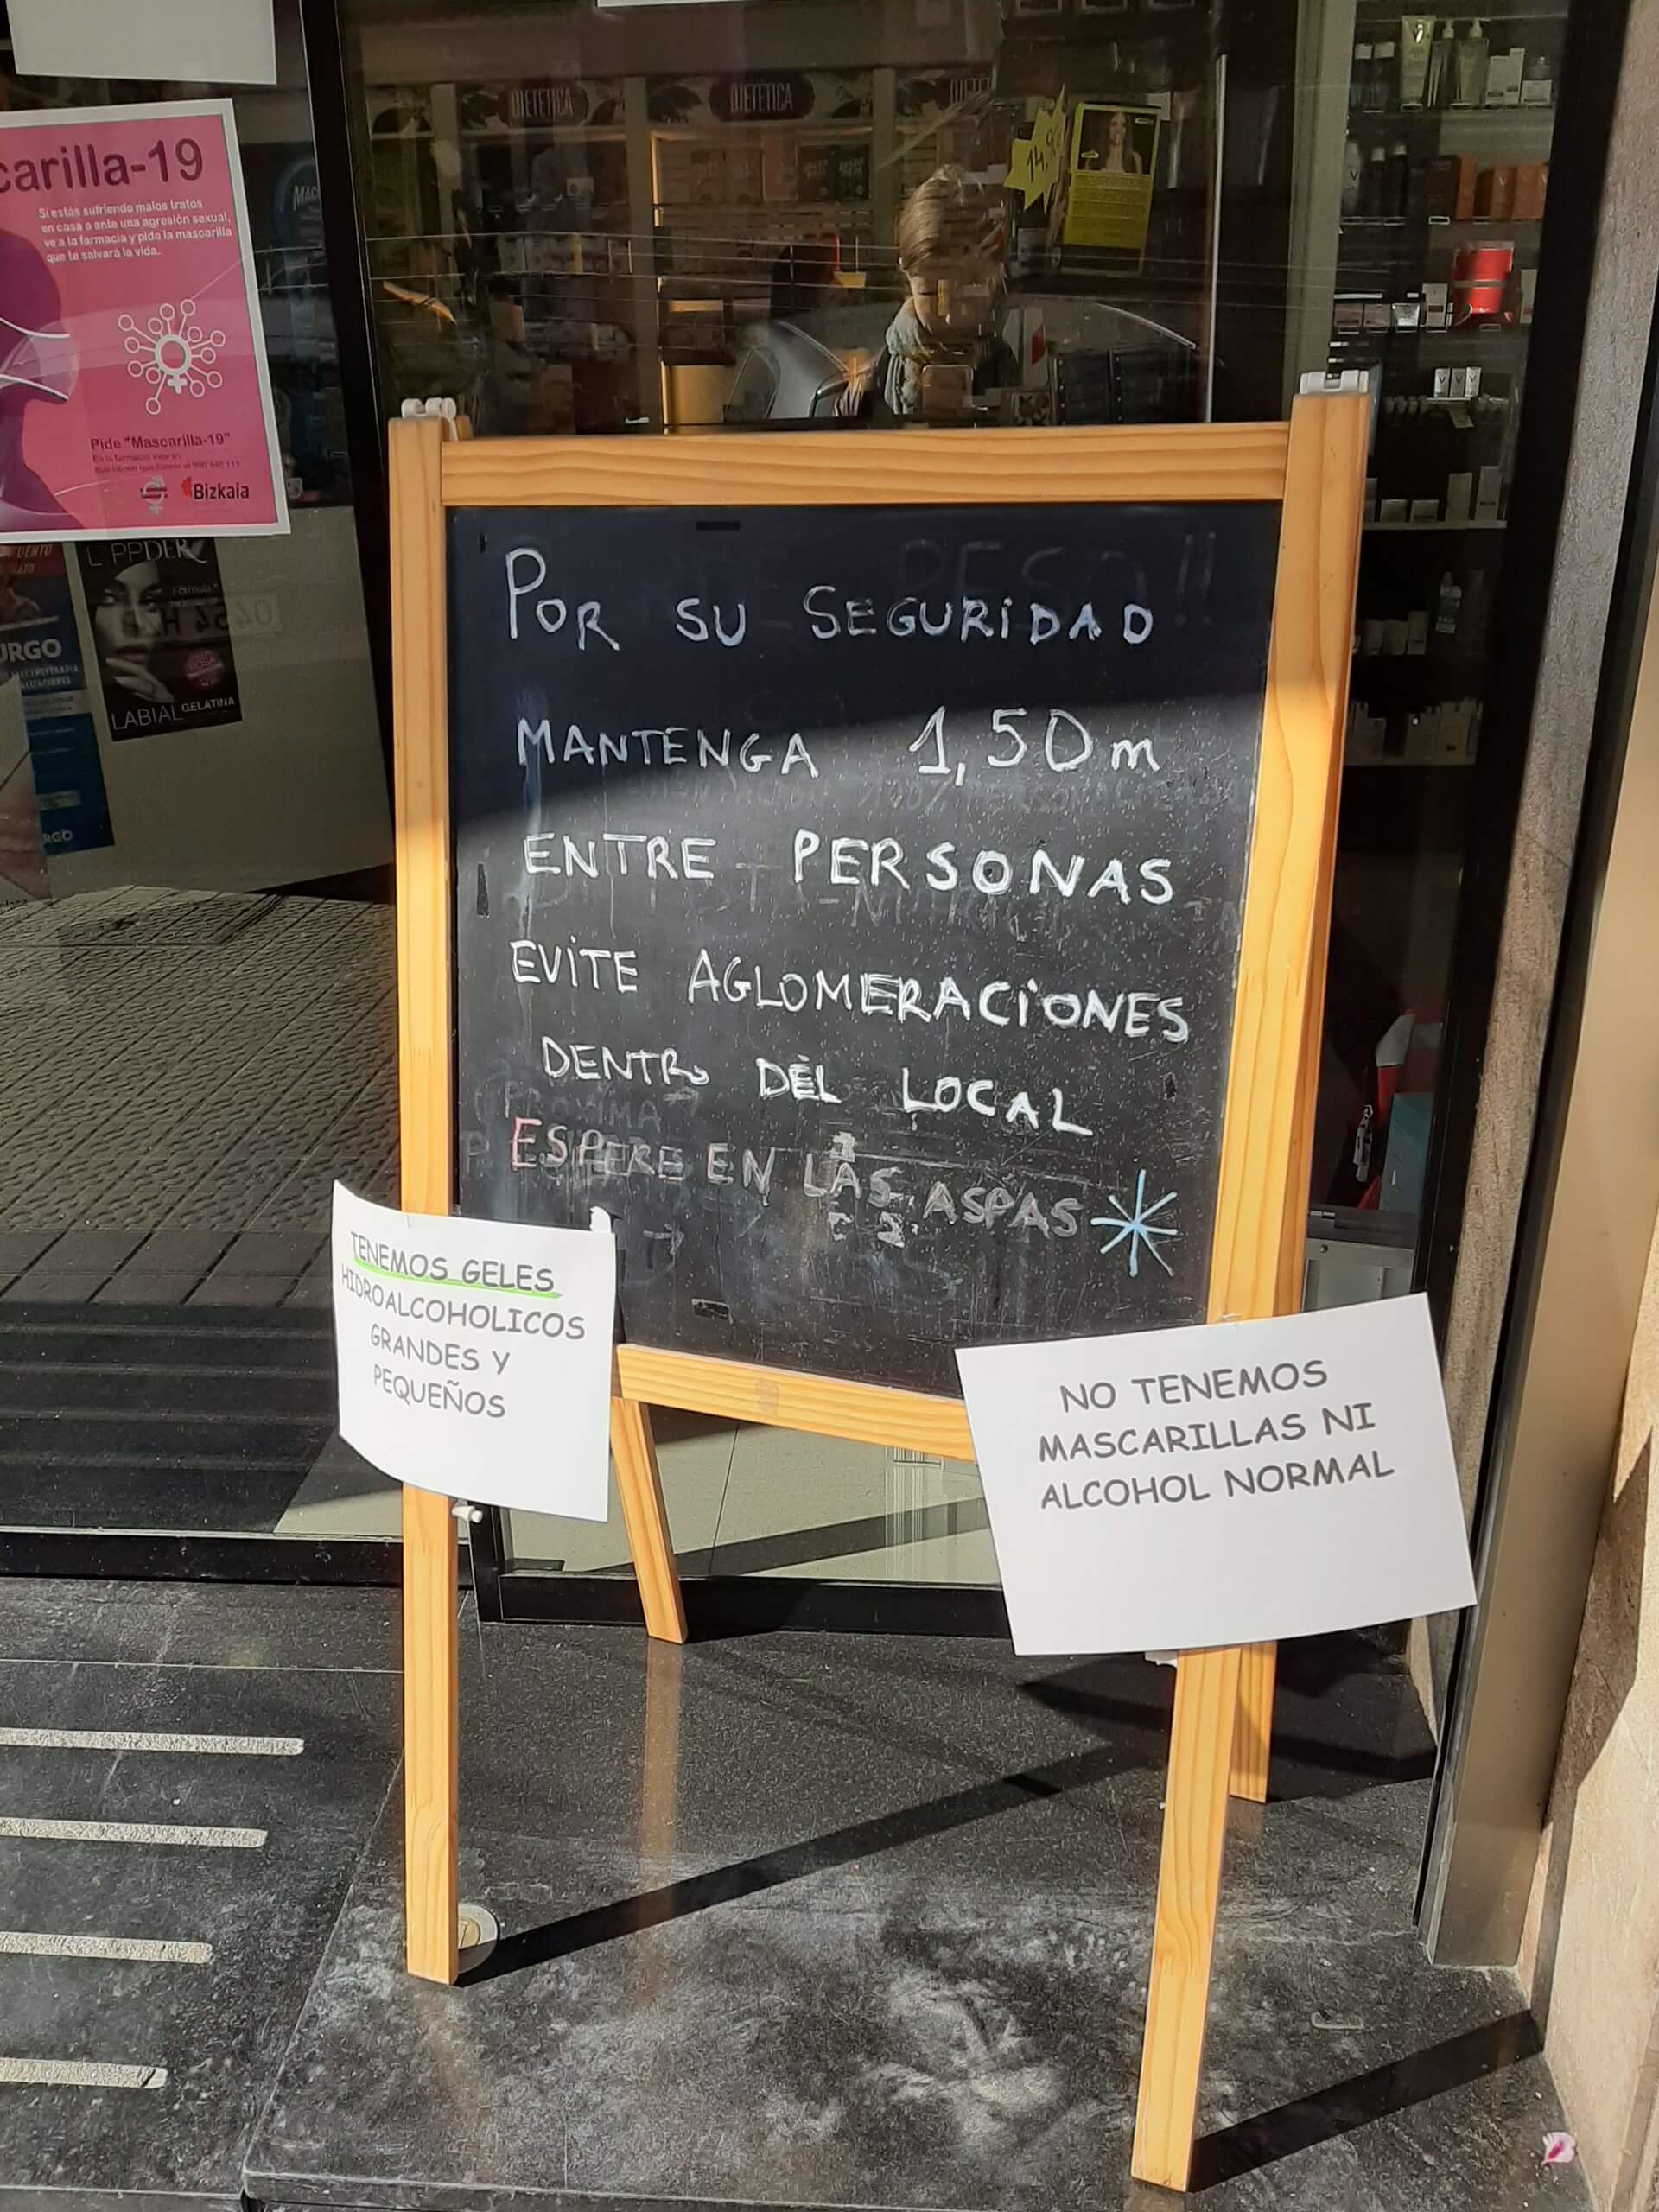 DIETETICA
DIETETICA
carilla-19
Si estás sufriendo malos tratos
en casa o ante una agresión sexual,
ve a la farmacia y pide la mascarilla
que te salvará la vida.
Pide "Mascarilla-19"
Bizkaia
14,9
LABIAL GELATINA
URGO
POR SU SEGURIDAD
MANTENGA 1,50m
ENTRE PERSONAS
EVITE AGLOMERACIONES
DENTRO DEL LOCAL
ESPERE EN LAS ASPAS
TENEMOS GELES
HIDROALCOHOLICOS
GRANDES Y
PEQUEÑOS
NO TENEMOS
MASCARILLAS NI
ALCOHOL NORMAL